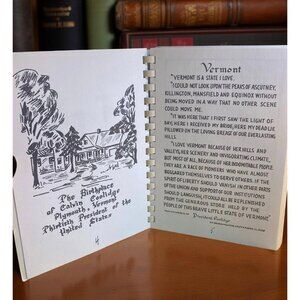 The Birthplace
of Calvin Coolidge
Plymouth, Vermont
Thirtieth President of the
United States
4
Vermont
"VERMONT IS A STATE I LOVE.
"I COULD NOT LOOK UPON THE PEAKS OF ASCUTNEY,
KILLINGTON, MANSFIELD AND EQUINOX WITHOUT
BEING MOVED IN A WAY THAT NO OTHER SCENE
COULD MOVE ME.
"IT WAS HERE THAT I FIRST SAW THE LIGHT OF
DAY; HERE I RECEIVED MY BRIDE; HERE MY DEAD LIE
PILLOWED ON THE LOVING BREAST OF OUR EVERLASTING
HILLS.
"I LOVE VERMONT BECAUSE OF HER HILLS AND
VALLEYS, HER SCENERY AND INVIGORATING CLIMATE,
BUT MOST OF ALL, BECAUSE OF HER INDOMITABLE PEOPLE.
THEY ARE A RACE OF PIONEERS WHO HAVE ALMOST
BEGGARED THEMSELVES TO SERVE OTHERS. IF THE
SPIRIT OF LIBERTY SHOULD VANISH IN OTHER PARTS
OF THE UNION AND SUPPORT OF OUR INSTITUTIONS
SHOULD LANGUISH, IT COULD ALL BE REPLENISHED
FROM THE GENEROUS STORE HELD BY THE
PEOPLE OF THIS BRAVE LITTLE STATE OF VERMONT"
President Coolidge
5